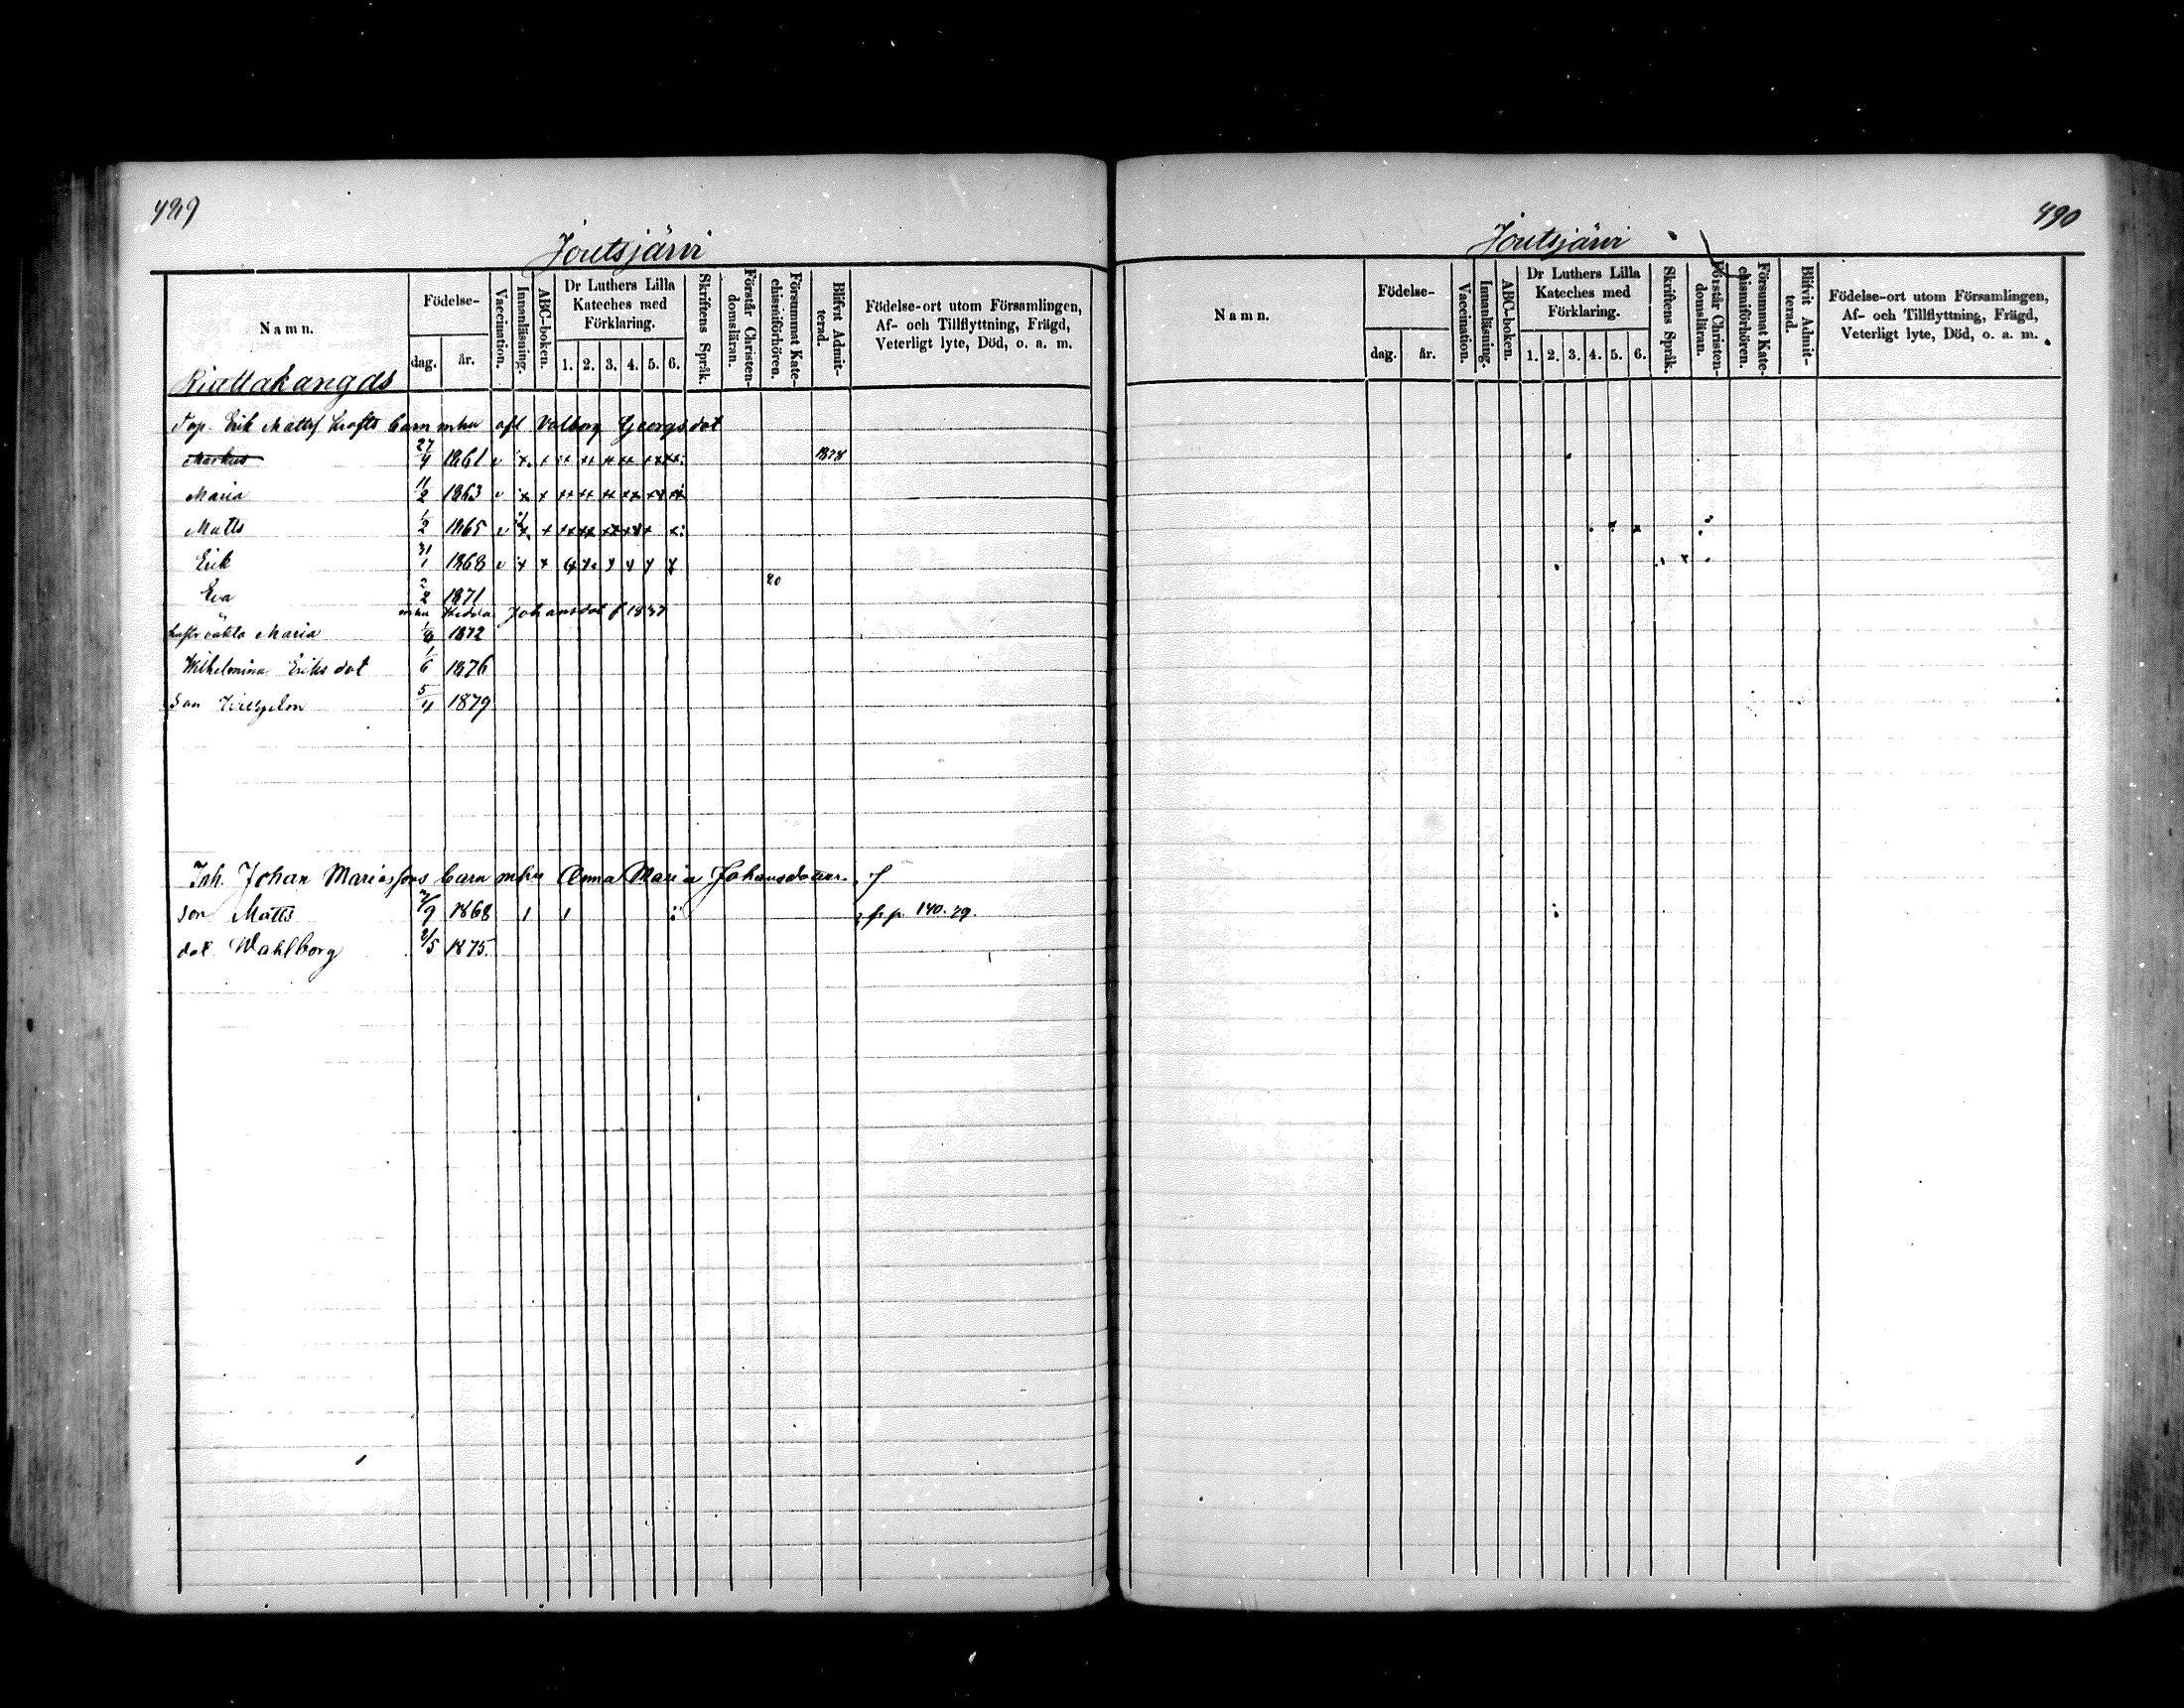 489
Joutsjärvi
Namn.
Födelse-
dag.
år.
Vaccination.
Innanläsning.
ABC-boken.
Dr Luthers Lilla
Kateches med
Förklaring.
1. 2. 3. 4. 5. 6.
Skriftens Språk.
Förstår Christen-
domsläran.
Försummat Kate-
chismiförhören.
Blifvit Admit-
terad.
Födelse-ort utom Församlingen,
Af- och Tillflyttning, Frägd,
Veterligt lyte, Död, o. a. m.
Erik Matts barn mhu afl Valborg Georgsdot
Markus 27/4 1861 v x + 1878
Maria 11/2 1863 v x +
Matts 1/2 1865 v x +
Erik 31/1 1868 v x x
Eva 2/2 1871 80
mhu Hedda Johansdot f 1837
oäkta Maria 1/8 1872
Wilhelmina Eriks dot 1/6 1876
Son 5/4 1879
Inh. Johan Mariassons barn mhu Anna Maria Johansdotter
son Matts 1868 fr p. 140. 79.
dot. Wahlborg 2/5 1875.
490
Joutsjärvi
Namn.
Födelse-
dag.
år.
Vaccination.
Innanläsning.
ABC-boken.
Dr Luthers Lilla
Kateches med
Förklaring.
1. 2. 3. 4. 5. 6.
Skriftens Språk.
Förstår Christen-
domsläran.
Försummat Kate-
chismiförhören.
Blifvit Admit-
terad.
Födelse-ort utom Församlingen,
Af- och Tillflyttning, Frägd,
Veterligt lyte, Död, o. a. m.